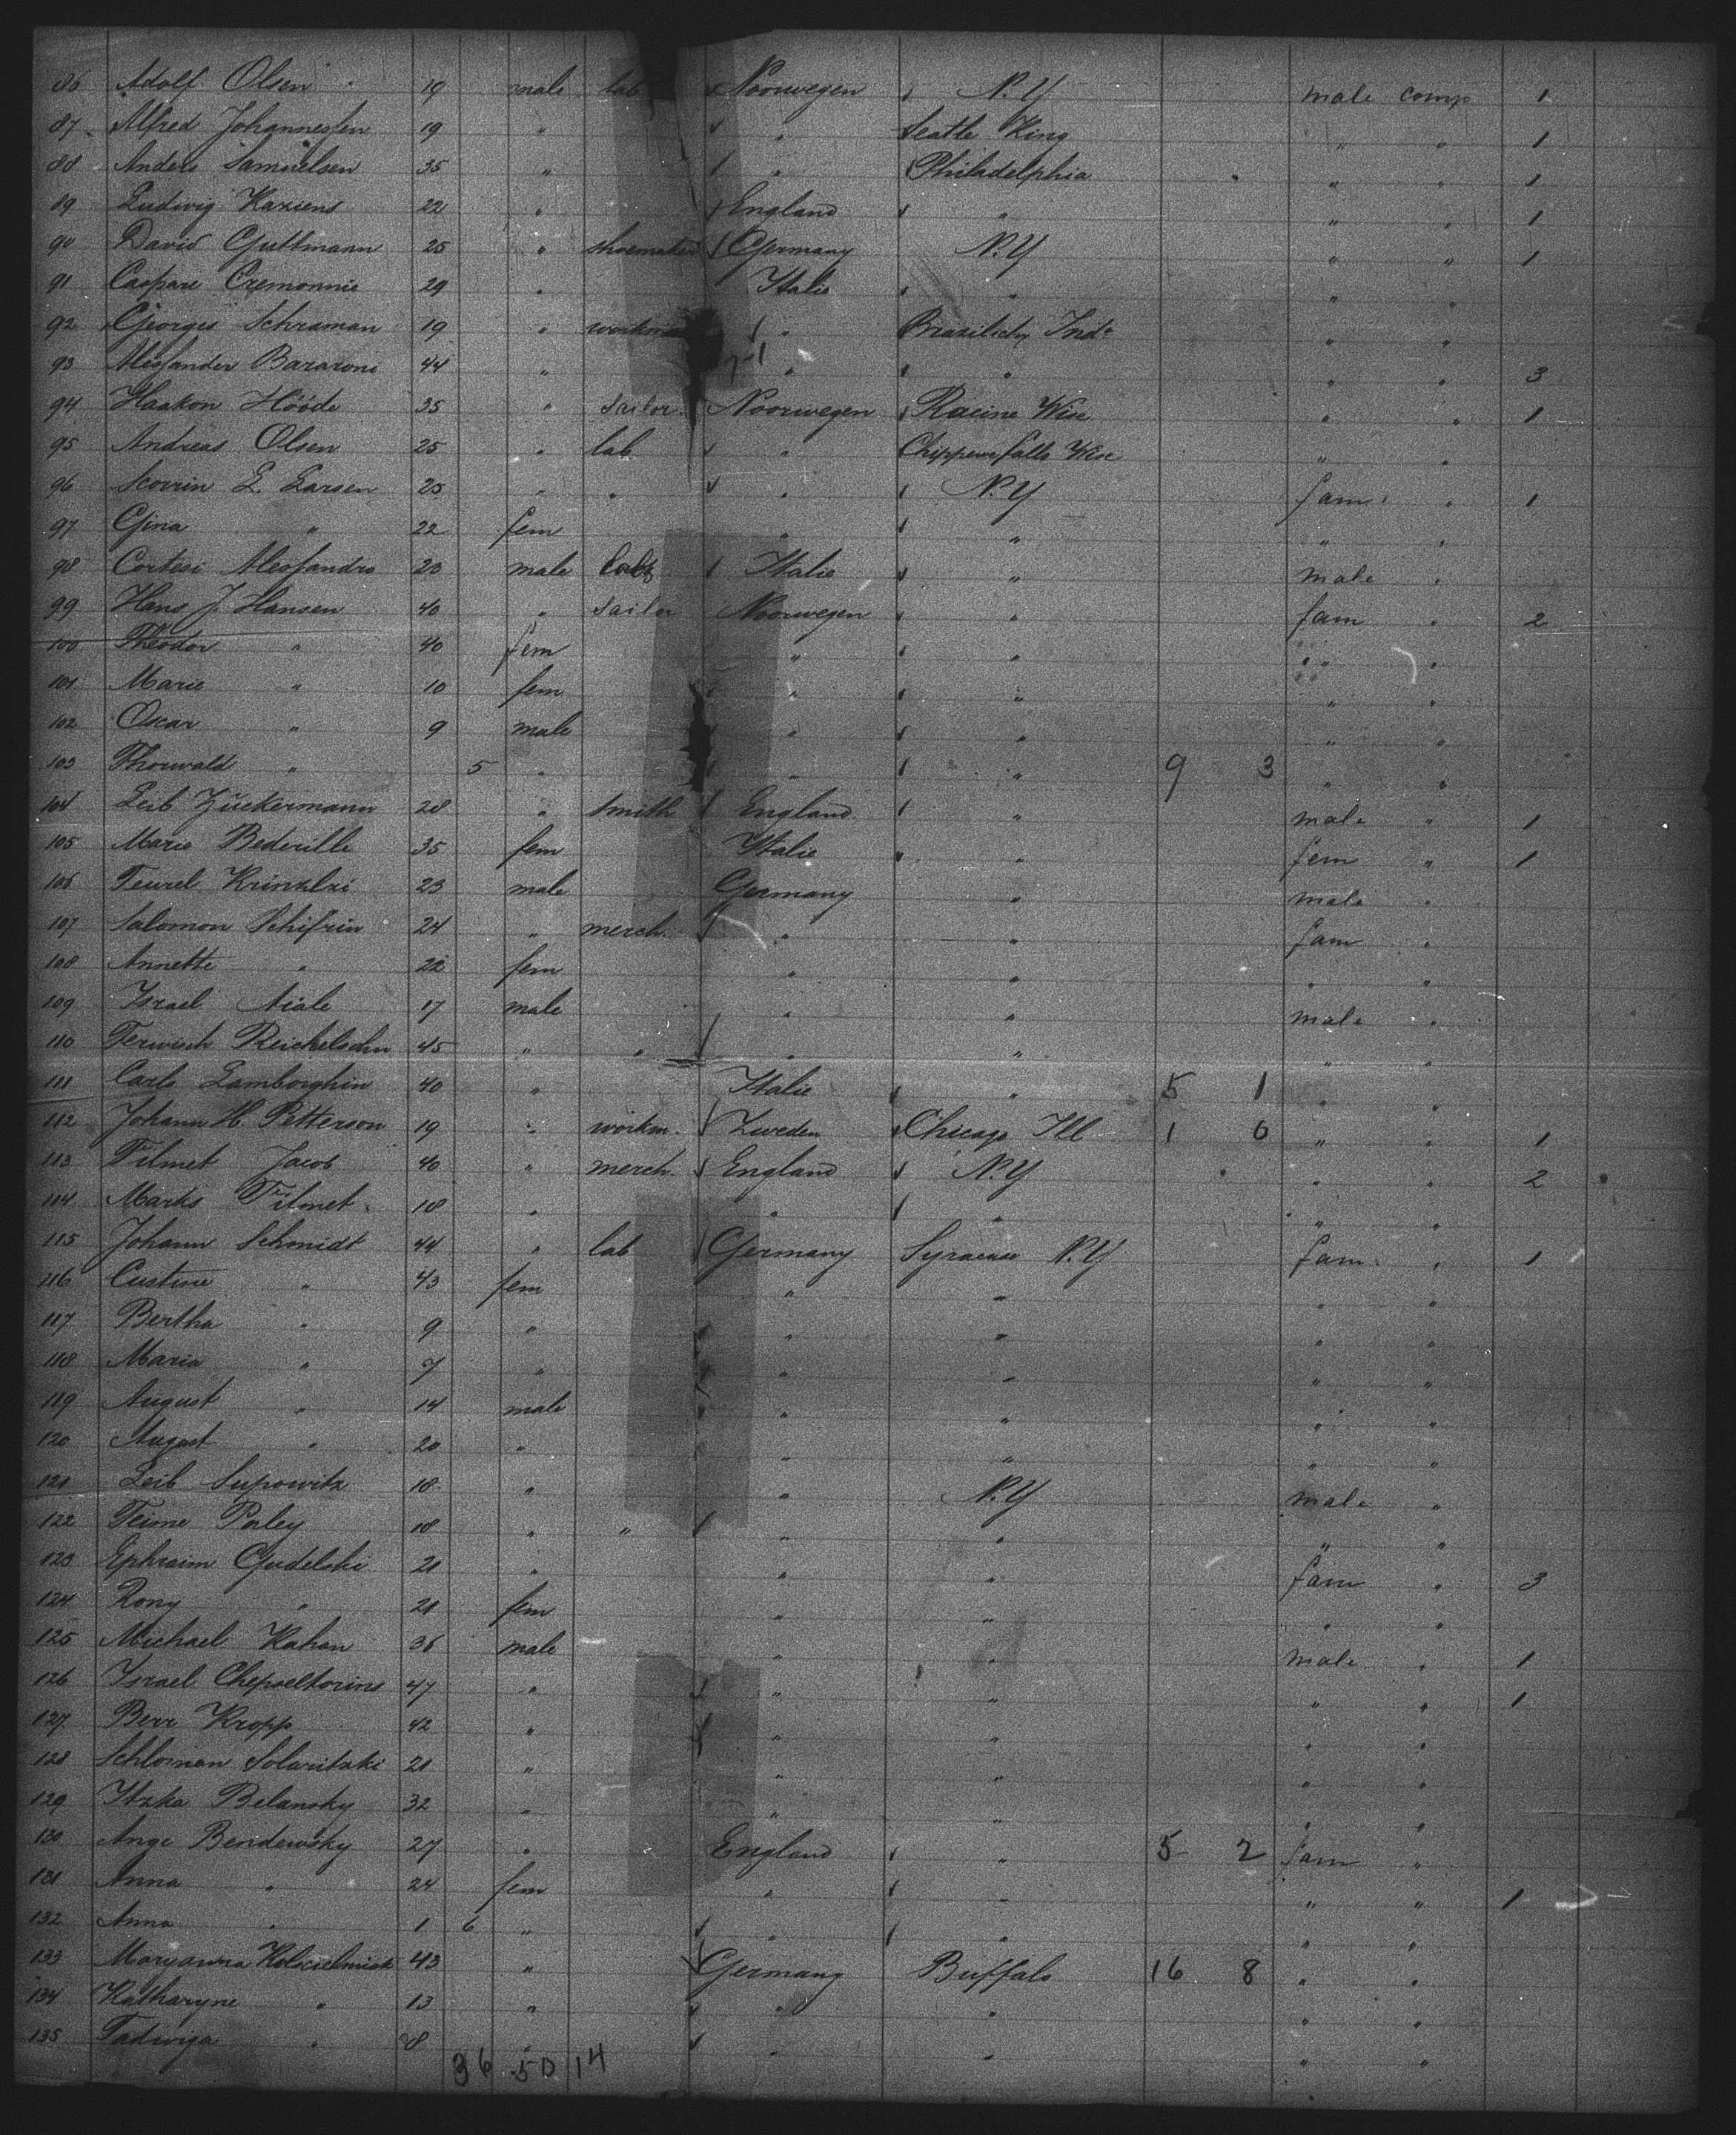 86 Adolf Olsen 19 male lab Noorwegen N.Y male comp 1
87 Alfred Johannessen 19 " " Seatle King " " 1
88 Anders Samuelsen 35 " " Philadelphia " " 1
89 Ludwig Kaxiens 22 " England " " " 1
90 David Guttmann 25 " shoemaker Germany N.Y " " 1
91 Caspare Cremonnie 29 " Italie " " "
92 Georges Schraman 19 " workm " " "
93 Alessander Bararoni 44 " " " " " 3
94 Haakon Hööde 35 " Sailor Noorwegen Racine Wisc " " 1
95 Andreas Olsen 25 " lab " Chippewafalls Wisc " "
96 L. Larsen 25 " " " N.Y fam " 1
97 Gina " 22 fem " " " "
98 Cortesi Alessandro 23 male Italie " male "
99 Hans J. Hansen 40 " Sailor Noorwegen " fam " 2
100 Theodor " 40 fem " " " "
101 Marie " 10 fem " " " "
102 Oscar " 9 male " " " "
103 Thorwald " 5 " " " 9 3 " "
104 Leib Zückermann 28 " Smith England " male " 1
105 Marie Bederille 35 fem Italie " fem " 1
106 Teurel Krinzlzi 23 male Germany " male "
107 Salomon Schifrin 24 " merch. " " fam "
108 Annette " 22 fem " " " "
109 Israel Aiale 17 male " " male "
110 Ferwisch Reichelsohn 45 " " " " " "
111 Carlo Lamborghin 40 " Italie " 5 1 " "
112 Johann H. Petterson 19 " workm. Zweden Chicago Ill 1 0 " " 1
113 Filmet Jacob 40 " merch. England N.Y " " 2
114 Marks Filmet 18 " " " " "
115 Johann Schmidt 44 " lab Germany Syracuse N.Y fam " 1
116 Custine " 43 fem " " " "
117 Bertha " 9 " " " " "
118 Maria " 7 " " " " "
119 August " 14 male " " " "
120 August " 20 " " " " "
121 Leib Supowitz 18 " " N.Y male "
122 Teime Paley 18 " " " " " "
123 Ephraim Gudelski 21 " " " fam " 3
124 Rony " 21 fem " " " "
125 Michael Kahan 36 male " " male " 1
126 Israel 47 " " " " " 1
127 Berr Kropp 42 " " " " "
128 Schloman Solaritzki 21 " " " " "
129 Itzka Belansky 32 " " " " "
130 Ange Bendewsky 27 " England " 5 2 fam "
131 Anna " 24 fem " " " " 1
132 Anna " 1 6 " " " " "
133 Maryanna 43 " Germany Buffalo 16 8 " "
134 Katharyne " 13 " " " " "
135 Tadwiga " 8 " " " " "
36 50 14